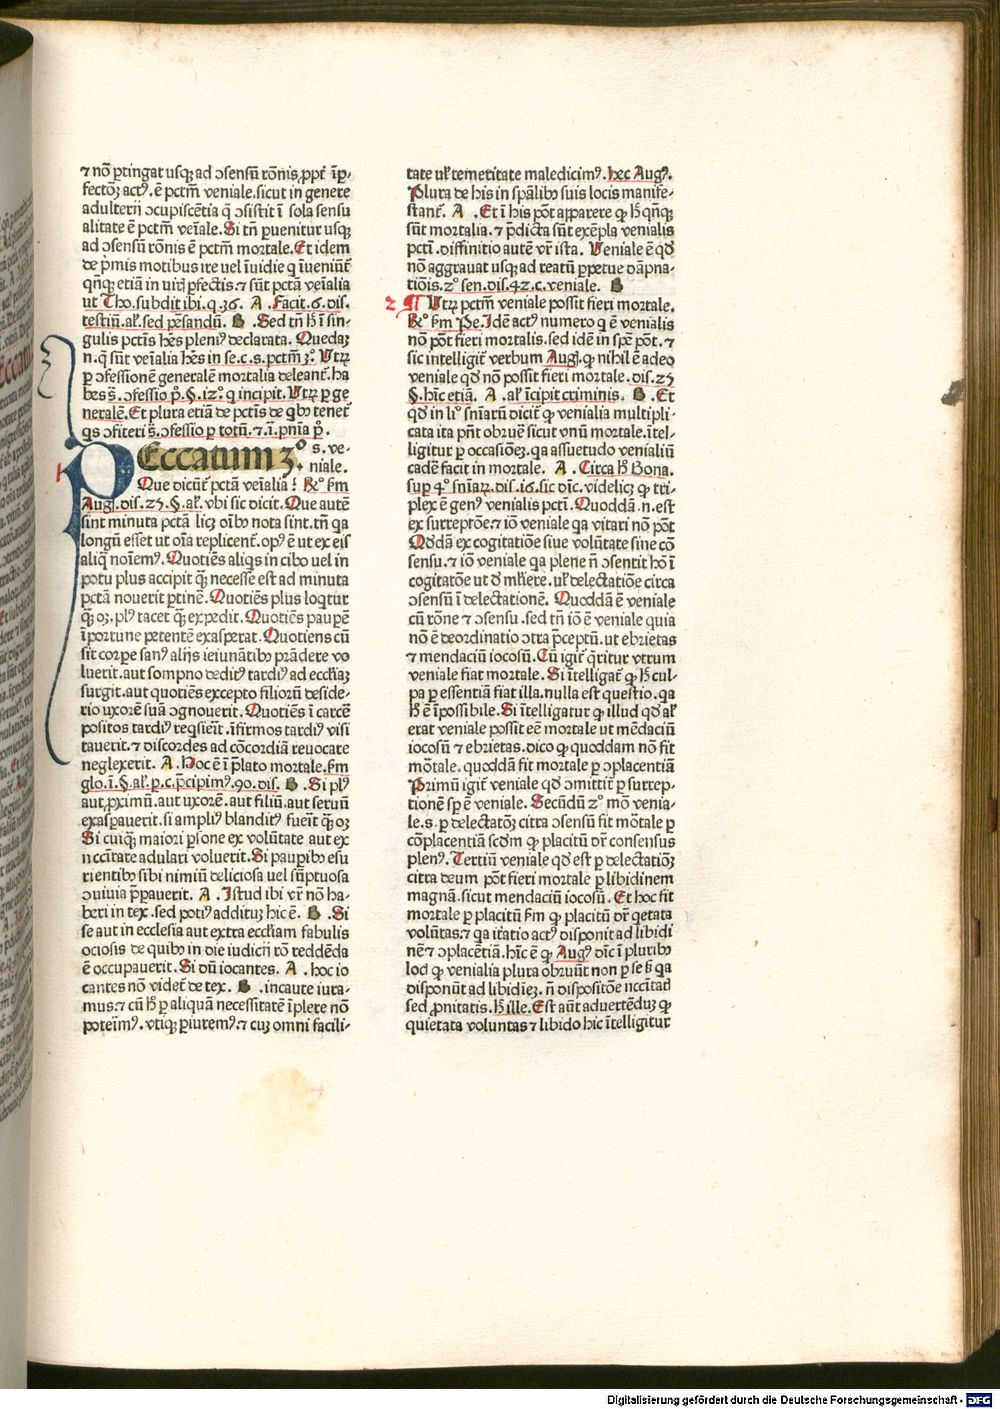 ⁊ nō ꝑtingat usqꝫ ad ↄsensū rōnis, ꝓpt̄ īꝑ-
fectōꝫ actꝰ. ē pctm̄ veniale. sicut in genere
adulterij ↄcupiscētia q̄ ↄsistit ī sola sensu
alitate ē pctm̄ veīale. Si tn̄ ꝑuenitur usqꝫ
ad ↄsensū rōnis ē pctm̄ mortale. Et idem
de p̄mis motibus ire vel īuidie q̄ īueniūt̄
qn̄qꝫ etiā in uirꝭ ꝑfectis. ⁊ sūt pctā veīalia
ut Tho. subdit ibi. q. 36. A . Facit. 6. dis.
testiū. al̄. sed pēsandū. B . Sed tn̄ hͦ ī sin-
gulis pctīs hēs pleniꝰ declarata. Quedaꝫ
n. q̄ sūt veīalia hēs in se. c. s. pctm̄ 3ͦ. Utꝝ
ꝑ ↄfessionē generalē mortalia deleant̄. ha
bes s̄. ↄfessio pͦ. §. 12ͦ. q incipit. Utꝝ ꝑ ge
neralē. Et plura etiā de pctīs de qbꝰ tenet̄
qs ↄfiteri s̄. ↄfessio ꝑ totū. ⁊. ī. pnīa pͦ.
PEccatum 3ͦ . s. ve-
niale.
Que dicūt̄ pctā veīalia? Rͦ. fm
Augꝰ. dis. 25. §. al̄. vbi sic dicit. Que autē
sint minuta pctā licꝫ oībꝰ nota sint. tn̄ qa
longū esset ut oīa replicent̄. opꝰ ē ut ex eis
aliq̄ noīemꝰ. Quotiēs aliqs in cibo vel in
potu plus accipit q̄ꝫ necesse est ad minuta
pctā nouerit ꝑtinē. Quotiēs plus loqtur
q̄ꝫ oꝫ. plꝰ tacet q̄ꝫ expedit. Quotiēs paupē
īportune petentē exasperat. Quotiens cū
sit corpe sanꝰ alijs ieiunātibꝰ prādere vo
luerit. aut sompno deditꝰ tardiꝰ ad eccl̄iaꝫ
surgit. aut quotiēs excepto filioꝝ deside-
rio uxorē suā ↄgnouerit. Quotiēs ī carcē
positos tardiꝰ reqsierit. īfirmos tardiꝰ visi
tauerit. ⁊ discordes ad cōcordiā reuocare
neglexerit. A . Hoc ē ī p̄lato mortale. fm
glo. ī. §. al̄. ꝑ. c. p̄cipimꝰ. 90. dis. B . Si plꝰ
aut, ꝓximū. aut uxorē. aut filiū. aut seruū
exasꝑauerit. si ampliꝰ blanditꝰ fuerit q̄ꝫ oꝫ
Si cuiqꝫ maiori ꝑsone ex volūtate aut ex
nccītate adulari voluerit. Si paupibꝰ esu
rientibꝰ sibi nimiū deliciosa vel sūptuosa
ↄuiuia p̄ꝑauerit. A . Istud ibi vr̄ nō ha-
beri in tex. sed potiꝰ addituꝫ hic ē. B . Si
se aut in ecclesia aut extra eccl̄iam fabulis
ociosis de quibꝰ in die iudicij rō reddēda
ē occupauerit. Si dū iocantes. A . hoc io
cantes nō videt̄ de tex. B . incaute iura-
mus. ⁊ cū hͦ ꝑ aliquā necessitatē īplere nō
poterīmꝰ. vtiqꝫ ꝑiuremꝰ. ⁊ cuꝫ omni facili-
tate vl̄ temeritate maledicimꝰ. hec Augꝰ.
Plura de his in spālibꝰ suis locis manife-
stant̄. A . Et ī his pōt apparere qꝙ hͦ qn̄qꝫ
sūt mortalia. ⁊ p̄dicta sūt exēpla venialis
pctī. diffinitio autē vr̄ ista. Veniale ē qd̄
nō aggrauat usqꝫ ad reatū ꝑpetue dāpna-
tiōis. 2ͦ sen. dis. 42. c. veniale. B
2 ¶ Utꝝ pctm̄ veniale possit fieri mortale.
Rͦ. fm Pe. Idē actꝰ numero q ē venialis
nō pōt fieri mortalis. sed idē in spē pōt. ⁊
sic intelligit̄ verbum Augꝰ. ꝙ nihil ē adeo
veniale qd̄ nō possit fieri mortale. dis. 25
§. hīc etiā. A . al̄. īcipit criminis. B . Et
qd̄ in liͦ snīarū dicit̄ ꝙ venialia multipli-
cata ita pn̄t obruē sicut vnū mortale. ītel-
ligitur ꝑ occasionēꝫ. qa assuetudo venialiū
cadē facit in mortale. A . Circa hͦ Bona.
suꝑ 4ͦ snīaꝝ. dis. 16. sic dīc. videlicꝫ ꝙ tri-
plex ē genꝰ venialis pctī. Quoddā. n. est
ex surreptōe. ⁊ iō veniale qa vitari nō pōt
Qd̄dā ex cogitatiōe siue volūtate sine cō
sensu. ⁊ iō veniale qa plene n̄ ↄsentit hō ī
cogitatōe ut d̄ mliere. vl̄ delectatiōe circa
ↄsensū ī delectationē. Quoddā ē veniale
cū rōne ⁊ ↄsensu. sed tn̄ iō ē veniale quia
nō ē deordinatio ↄtra p̄ceptū. ut ebrietas
⁊ mendaciū iocosū. Cū igit̄ q̄ritur vtrum
veniale fiat mortale. Si ītelligat̄ ꝙ hͦ cul-
pa ꝑ essentiā fiat illa. nulla est questio. qa
hͦ ē īpossibile. Si ītelligatur ꝙ illud qd̄ al̄
erat veniale possit eē mortale ut mēdaciū
iocosū ⁊ ebrietas. dico ꝙ quoddam nō fit
mōtale. quoddā fit mortale ꝑ ↄplacentiā
Primū igit̄ veniale qd̄ ↄmittit̄ ꝑ surrep-
tionē sp ē veniale. Secūdū 2ͦ mō venia-
le. s. ꝑ delectatōꝫ citra ↄsensū fit mōtale ꝑ
cōplacentiā scd̄m ꝙ placitū dr̄ consensus
plenꝰ. Tertiū veniale qd̄ est ꝑ delectatiōꝫ
citra deum pōt fieri mortale ꝑ libidinem
magnā. sicut mendaciū iocosū. Et hoc fit
mortale ꝑ placitū fm ꝙ placitū dr̄ qetata
volūtas. ⁊ qa iťatio actꝰ disponit ad libidi
nē ⁊ ↄplacētiā. hīc ē ꝙ Augꝰ dīc ī pluribꝰ
locꝭ ꝙ venialia plura obruūt non ꝑ se s̄ qa
disponūt ad libidīeꝫ. n̄ dispositōe nccītatꝭ
sed ꝓnitatis. hͦ ille. Est aūt aduertēduꝫ ꝙ
quietata voluntas ⁊ libido hic ītelligitur
Digitalisierung gefördert durch die Deutsche Forschungsgemeinschaft - DFG